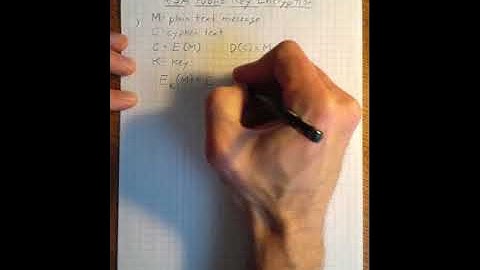 RSA Public Key Encryption
1) M: plain text message
C: cypher text
C = E(M) D(C) = M
K = Key
E_K(M) = C